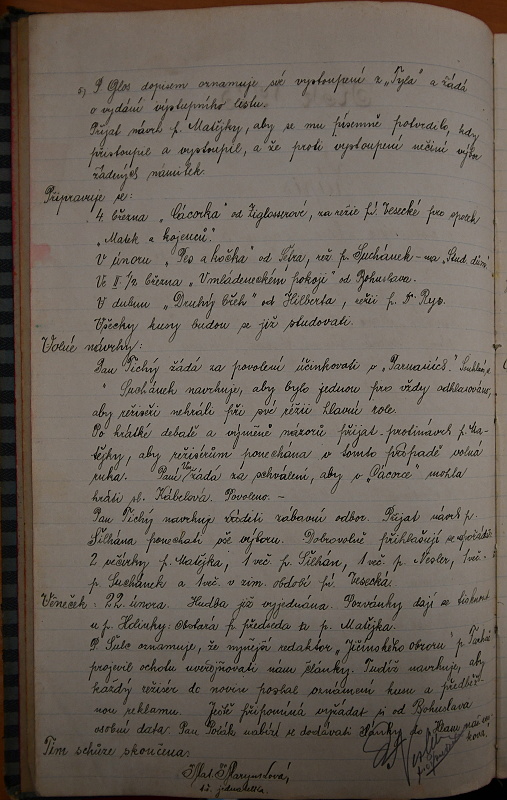 5) P. Glos dopisem oznamuje své vystoupení z „Tyla“ a žádá
o vydání výstupního listu.
Přijat návrh p. Matějky, aby se mu písemně potvrdilo, kdy
přestoupil a vystoupil, a že proti vystoupení nečiní výbor
žádných námitek.
Připravuje se:
4. března „Cácorka“ od Ziglosserové, za režie sl. Vesecké pro spolek
„Matek a kojenců.“
V únoru „Pes a kočka“ od Fétra, rež. p. Suchánek – na „Stud. dům“
Ve II. 1/2 března „V mládeneckém pokoji“ od Bohuslava.
V dubnu „Druhý břeh“ od Hilberta, režii p. Fr. Rys.
Všechny kusy budou se již studovati.
Volné návrhy:
Pan Tichý žádá za povolení účinkovati v „Parnasii“
„ Suchánek navrhuje, aby bylo jednou pro vždy odhlasováno,
aby režiséři nehráli při své režii hlavní role.
Po krátké debatě a výměně názorů přijat protinávrh p. Ma-
tějky, aby režisérům ponechána v tomto případě volná
ruka. Paní žádá za schválení, aby v „Cácorce“ mohla
hráti sl. Kábelová. Povoleno. –
Pan Tichý navrhuje zříditi zábavní odbor. Přijat návrh p.
Šilhána ponechati věc výboru. Dobrovolně přihlašují se uspořádati:
2 večírky p. Matějka, 1 več. p. Šilhán, 1 več. p. Nesler, 1 več.
p. Suchánek a 1 več. v zim. období sl. Vesecká.
Věneček: 22. února. Hudba již vyjednána. Pozvánky dají se tisknout
u p. Hlinky: Obstará p. předseda a p. Matějka.
P. Šulc oznamuje, že nynější redaktor „Jičínského obzoru“ p.
projevil ochotu uveřejňovati nám články. Tudíž navrhuje, aby
každý režisér do novin poslal oznámení kusu a předběž-
nou reklamu. Ještě připomíná vyžádat si od Bohuslava
osobní data. Pan Polák nabízí se dodávati zprávy do
Tím schůze skončena.
Mat.
t.č. jednatelka.